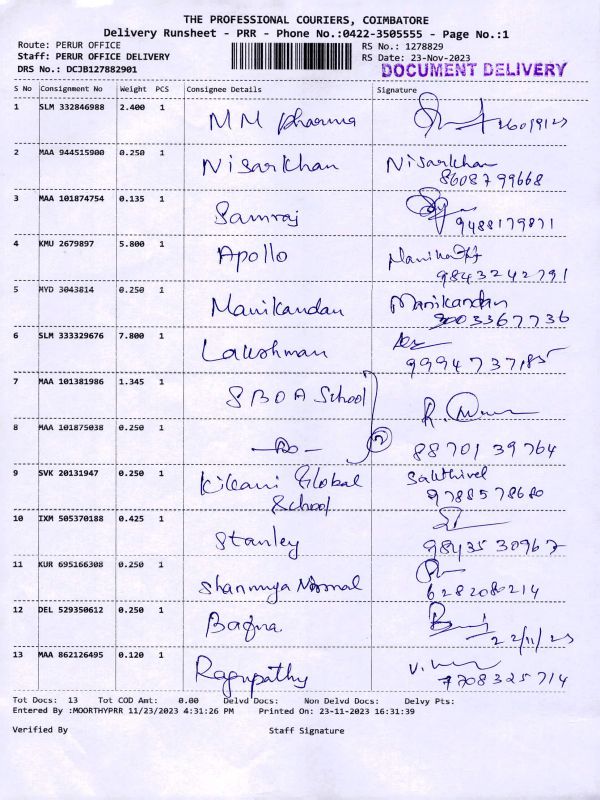 THE PROFESSIONAL COURIERS, COIMBATORE
Delivery Runsheet - PRR - Phone No.:0422-3505555 - Page No.:1
Route: PERUR OFFICE RS No.: 1278829
Staff: PERUR OFFICE DELIVERY RS Date: 23-Nov-2023
DRS No.: DCJB127882901 DOCUMENT DELIVERY
S No Consignment No Weight PCS Consignee Details Signature
1 SLM 332846988 2.400 1 MM pharma
2 MAA 944515900 0.250 1 Nisarkhan Nisarkhan
8608799668
3 MAA 101874754 0.135 1 Samraj
9488179871
4 KMU 2679897 5.800 1 Apollo
9843242791
5 MYD 3043814 0.250 1 Manikandan Manikandan
3003367736
6 SLM 333329676 7.800 1 Lakshman
9994737185
7 MAA 101381986 1.345 1 SBOA School
8 MAA 101875038 0.250 1 -Do- 2
8870139764
9 SVK 20131947 0.250 1 Kikani Global Sakthivel
School 9788578680
10 IXM 505370188 0.425 1 Stanley
9843530967
11 KUR 695166308 0.250 1
628208214
12 DEL 529350612 0.250 1
22/11/23
13 MAA 862126495 0.120 1 Ragupathy
7708325714
Tot Docs: 13 Tot COD Amt: 0.00 Delvd Docs: Non Delvd Docs: Delvy Pts:
Entered By :MOORTHYPRR 11/23/2023 4:31:26 PM Printed On: 23-11-2023 16:31:39
Verified By Staff Signature